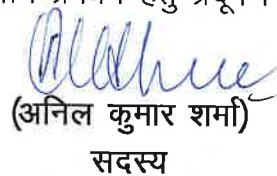 हेतु
(अनिल कुमार शर्मा)
सदस्य